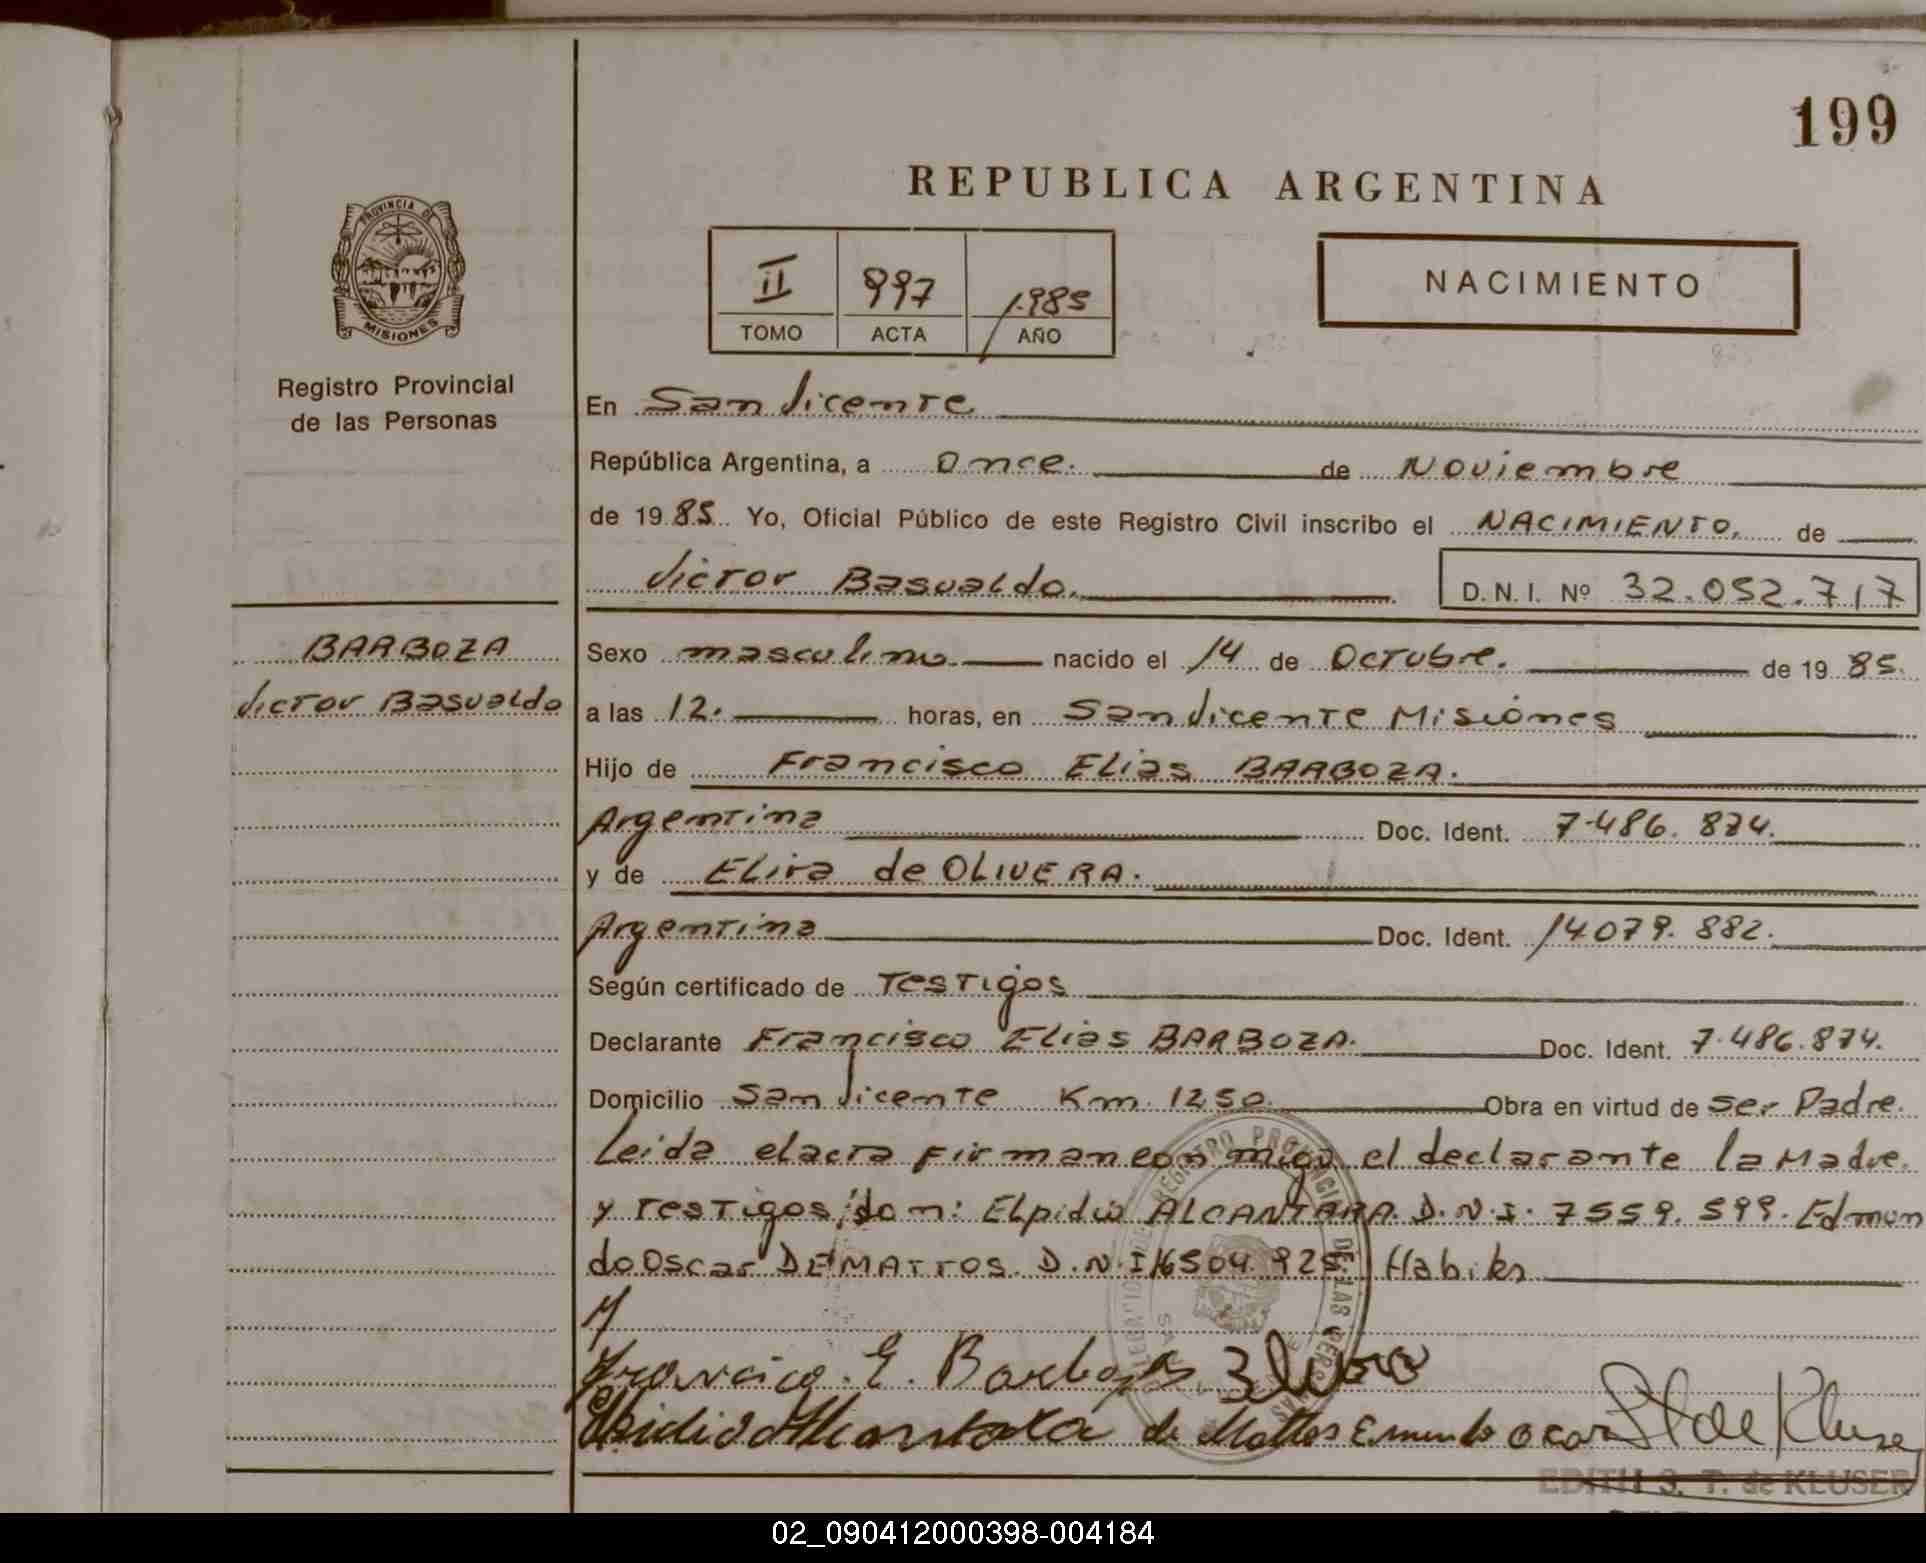 199
REPUBLICA ARGENTINA
PROVINCIA DE
MISIONES
Registro Provincial
de las Personas
II 997 1.985
TOMO ACTA AÑO
NACIMIENTO
En San Vicente
República Argentina, a once. de Noviembre
de 19 85 Yo, Oficial Público de este Registro Civil inscribo el NACIMIENTO, de
Victor Basualdo. D. N. I. Nº 32.052.717
BARBOZA
Victor Basualdo
Sexo masculino nacido el 14 de Octubre. de 19 85.
a las 12. horas, en San Vicente Misiones
Hijo de Francisco Elias BARBOZA.
Argentina Doc. Ident. 7.486.874.
y de Elira de OLIVERA.
Argentina Doc. Ident. 14079.882.
Según certificado de Testigos
Declarante Francisco Elias BARBOZA. Doc. Ident. 7.486.874.
Domicilio San Vicente Km. 1250. Obra en virtud de ser Padre.
Leida elacta firman conmigo el declarante la Madre
y testigos don: Elpidio ALCANTARA. D.N.I. 7559.599. Edmun
doOscar DE MATTOS. D.N.I 16504.925. Habiks
y
Francico. E. Barboza Elira
Elpidio Alcantara de Mattos Emundo Ocar St de Kluser
EDITH S. T. de KLUSER
02_090412000398-004184